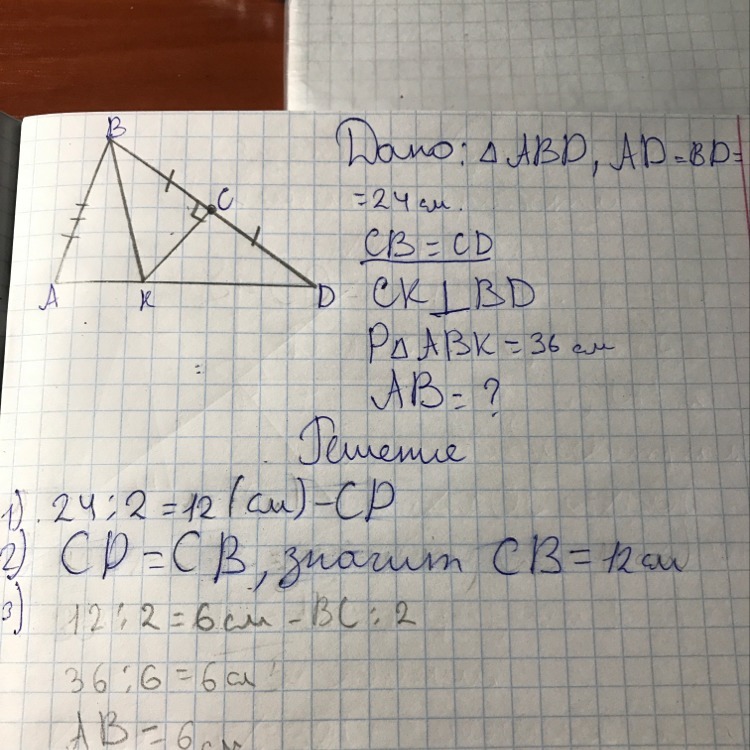 B
C
A
K
D
Дано: △ABD, AD=BD=
=24 см.
CB = CD
CK⊥BD
P△ABK = 36 см
AB = ?
Решение
1). 24:2=12(см)-CD
2) CD=CB, значит CB=12см
3) 12:2=6см-BC:2
36:6=6см
AB=6см